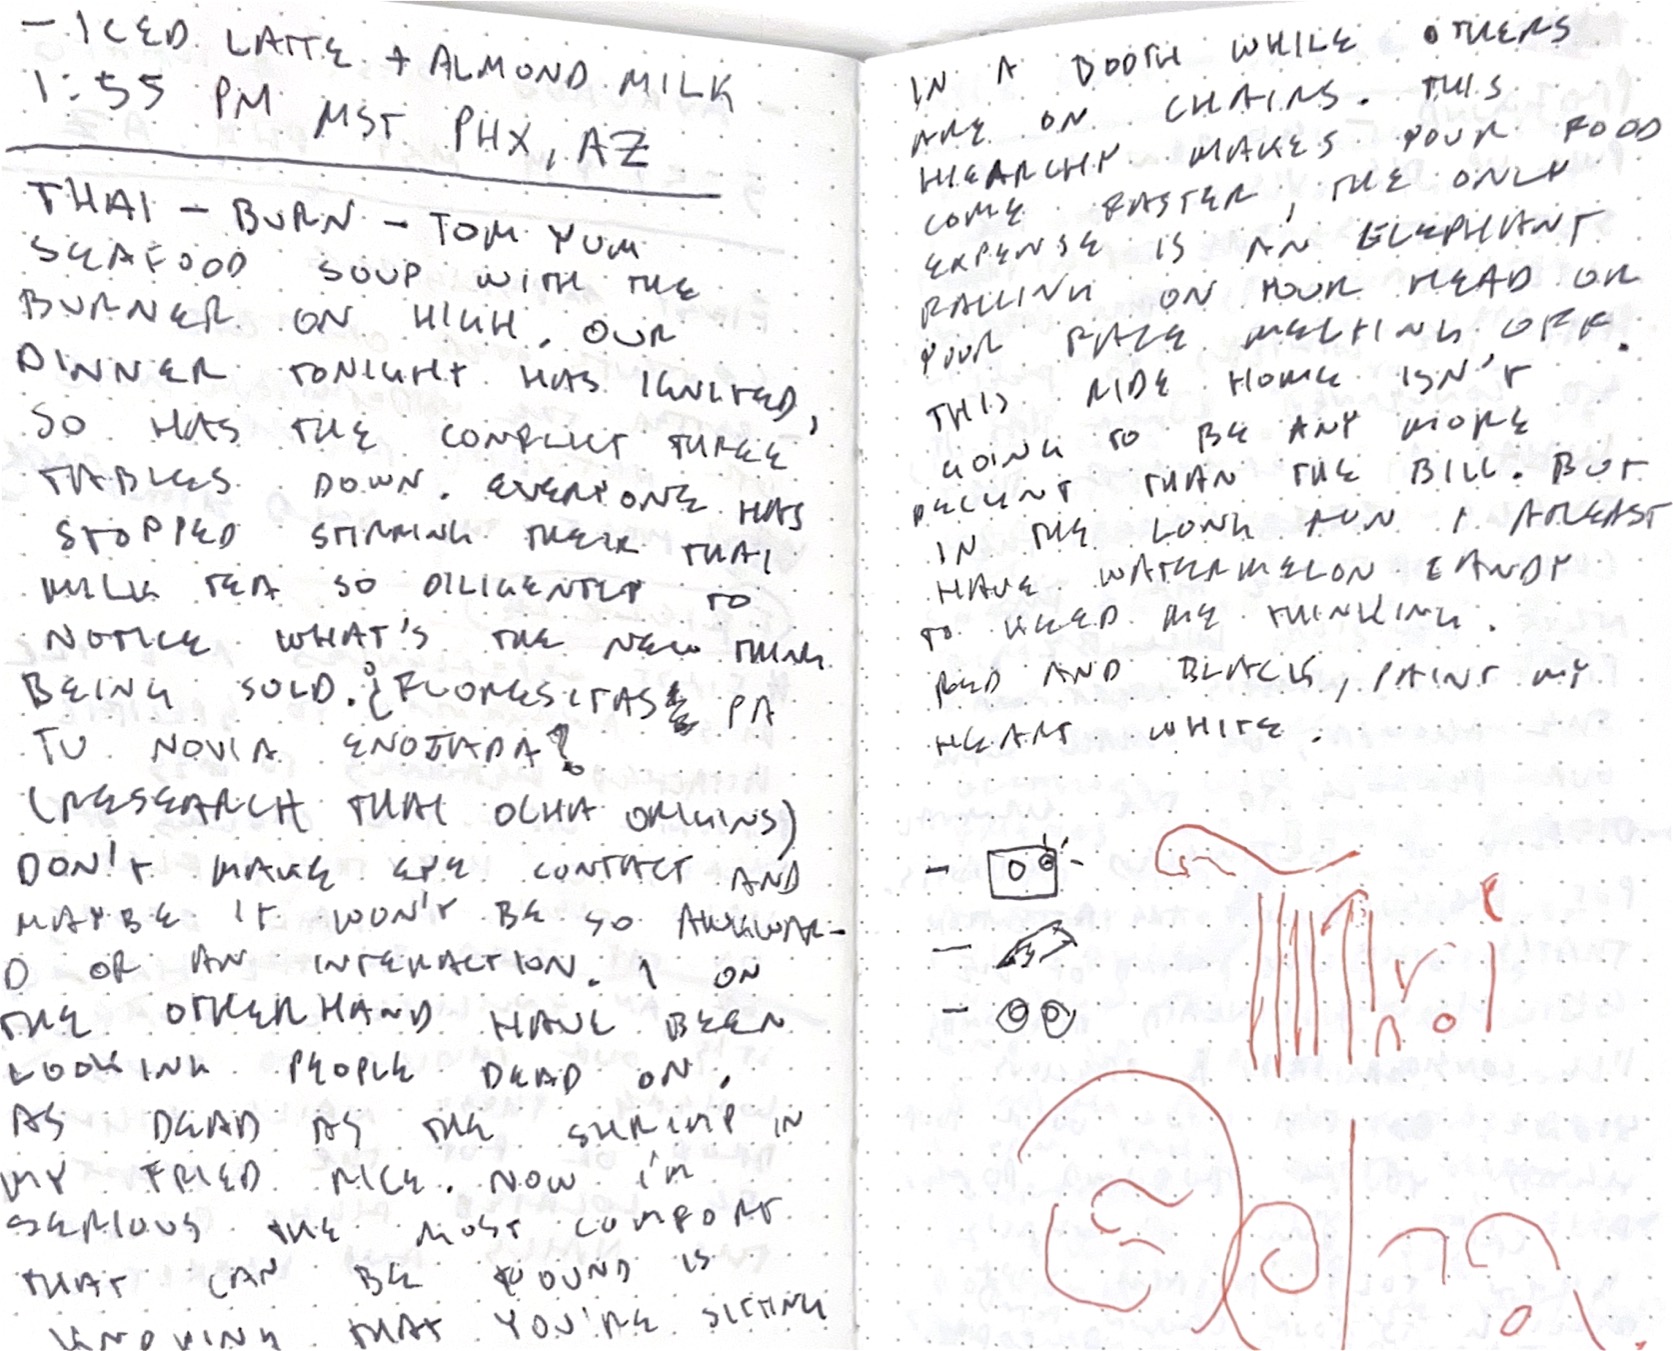 - ICED LATTE + ALMOND MILK
1:55 PM MST PHX, AZ
THAI - BURN - TOM YUM
SEAFOOD SOUP WITH THE
BURNER ON HIGH. OUR
DINNER TONIGHT HAS IGNITED,
SO HAS THE CONFLICT THREE
TABLES DOWN. EVERYONE HAS
STOPPED STIRRING THEIR THAI
MILK TEA SO DILIGENTLY TO
NOTICE WHAT'S THE NEW THING
BEING SOLD. ¿FLORESITAS PA
TU NOVIA ENOJADA?
(RESEARCH THAI OLHA ORIGINS)
DON'T MAKE EYE CONTACT AND
MAYBE IT WON'T BE SO AWKWAR-
D OF AN INTERACTION. I ON
THE OTHER HAND HAVE BEEN
LOOKING PEOPLE DEAD ON.
AS DEAD AS THE SHRIMP IN
MY FRIED RICE. NOW I'M
SERIOUS THE MOST COMFORT
THAT CAN BE FOUND IS
KNOWING THAT YOU'RE SITTING
IN A BOOTH WHILE OTHERS
ARE ON CHAIRS. THIS
HIEARCHY MAKES YOUR FOOD
COME FASTER, THE ONLY
EXPENSE IS AN ELEPHANT
FALLING ON YOUR HEAD OR
YOUR FACE MELTING OFF.
THIS RIDE HOME ISN'T
GOING TO BE ANY MORE
DECENT THAN THE BILL. BUT
IN THE LONG RUN I ATLEAST
HAVE WATERMELON CANDY
TO KEEP ME THINKING.
RED AND BLACK, PAINT MY
HEART WHITE.